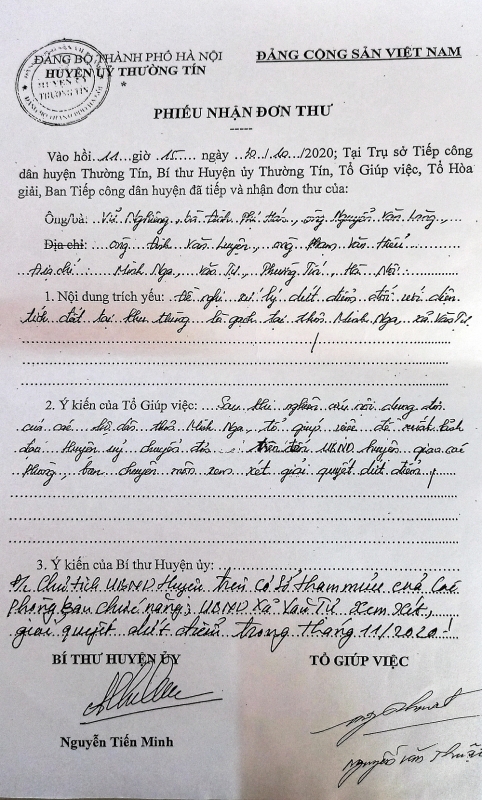 ĐẢNG BỘ THÀNH PHỐ HÀ NỘI
HUYỆN ỦY THƯỜNG TÍN
*
ĐẢNG CỘNG SẢN VIỆT NAM
HUYỆN ỦY
THƯỜNG TÍN
PHIẾU NHẬN ĐƠN THƯ
-----
Vào hồi 11 giờ 15 ngày 12/10/2020; Tại Trụ sở Tiếp công
dân huyện Thường Tín, Bí thư Huyện ủy Thường Tín, Tổ Giúp việc, Tổ Hòa
giải, Ban Tiếp công dân huyện đã tiếp và nhận đơn thư của:
Ông/bà: Vũ bà Đinh ông Nguyễn Văn
Địa chỉ: ông Đinh Văn Luyện, ông Phạm Văn Hiếu
Địa chỉ: Minh Nga, Văn Tự, Thường Tín, Hà Nội
1. Nội dung trích yếu: Đề nghị xử lý dứt điểm đối với diện
tích đất tại khu thùng lò gạch tại thôn Minh Nga, xã Văn Tự
2. Ý kiến của Tổ Giúp việc: Sau khi nghiên cứu nội dung đơn
của các hộ dân thôn Minh Nga, tổ giúp việc đề xuất lãnh
đạo Huyện uỷ chuyển đơn đến UBND huyện giao các
phòng, ban chuyên môn xem xét giải quyết dứt điểm
3. Ý kiến của Bí thư Huyện ủy:
Đ/c Chủ tịch UBND Huyện trên cơ sở tham mưu của các
phòng ban chức năng, UBND Xã Văn Tự xem xét,
giải quyết dứt điểm trong tháng 11/2020!
BÍ THƯ HUYỆN ỦY
TỔ GIÚP VIỆC
Nguyễn Tiến Minh
Nguyễn Văn Thuận